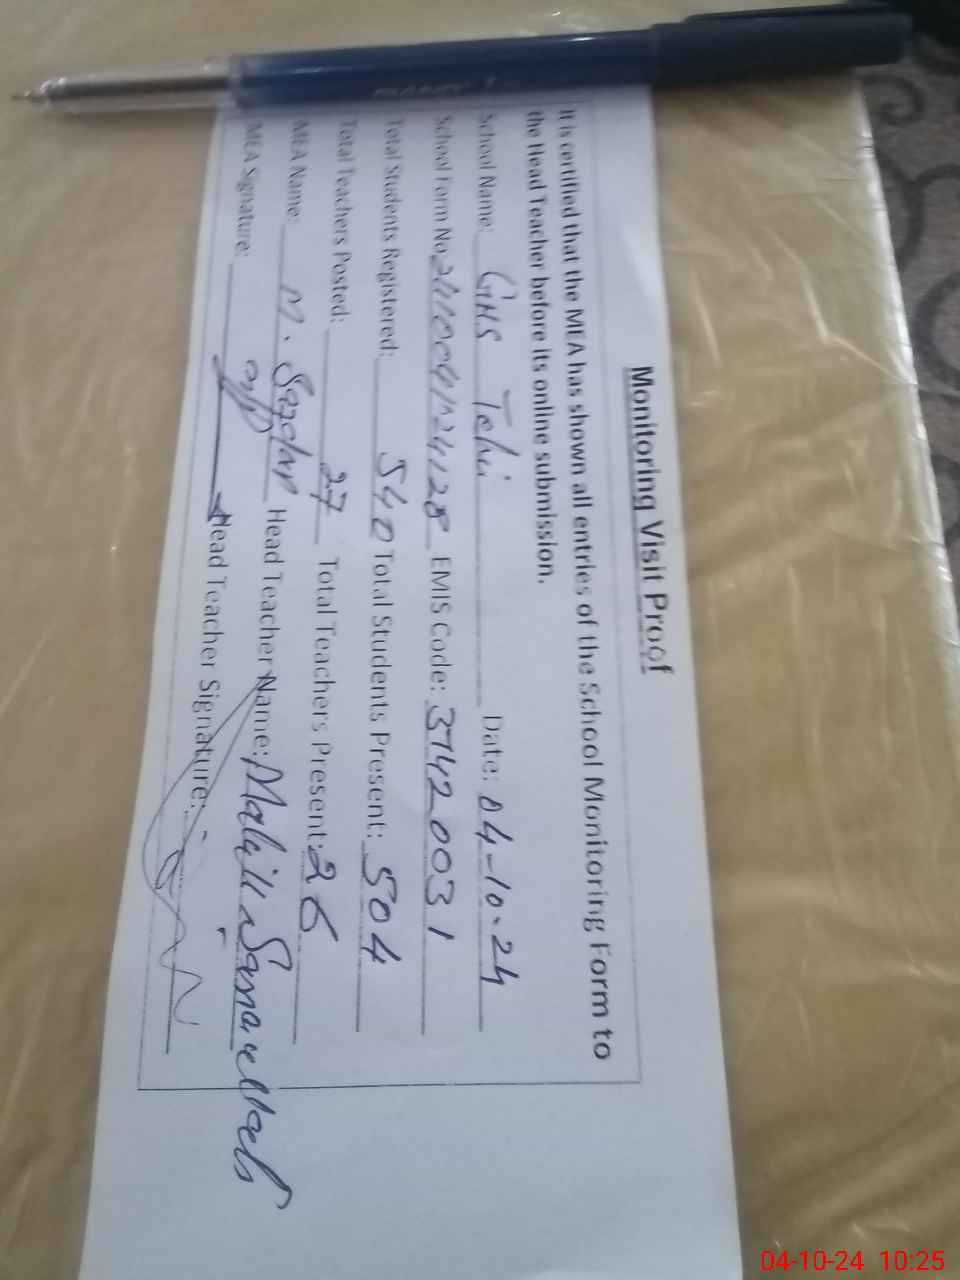 Monitoring Visit Proof
It is certified that the MEA has shown all entries of the School Monitoring Form to
the Head Teacher before its online submission.
School Name: GHS Tehi Date: 04-10-24
School Form No. EMIS Code: 37420031
Total Students Registered: 540 Total Students Present: 504
Total Teachers Posted: 27 Total Teachers Present: 26
MEA Name: M. Head Teacher Name:
MEA Signature: Head Teacher Signature:
04-10-24 10:25